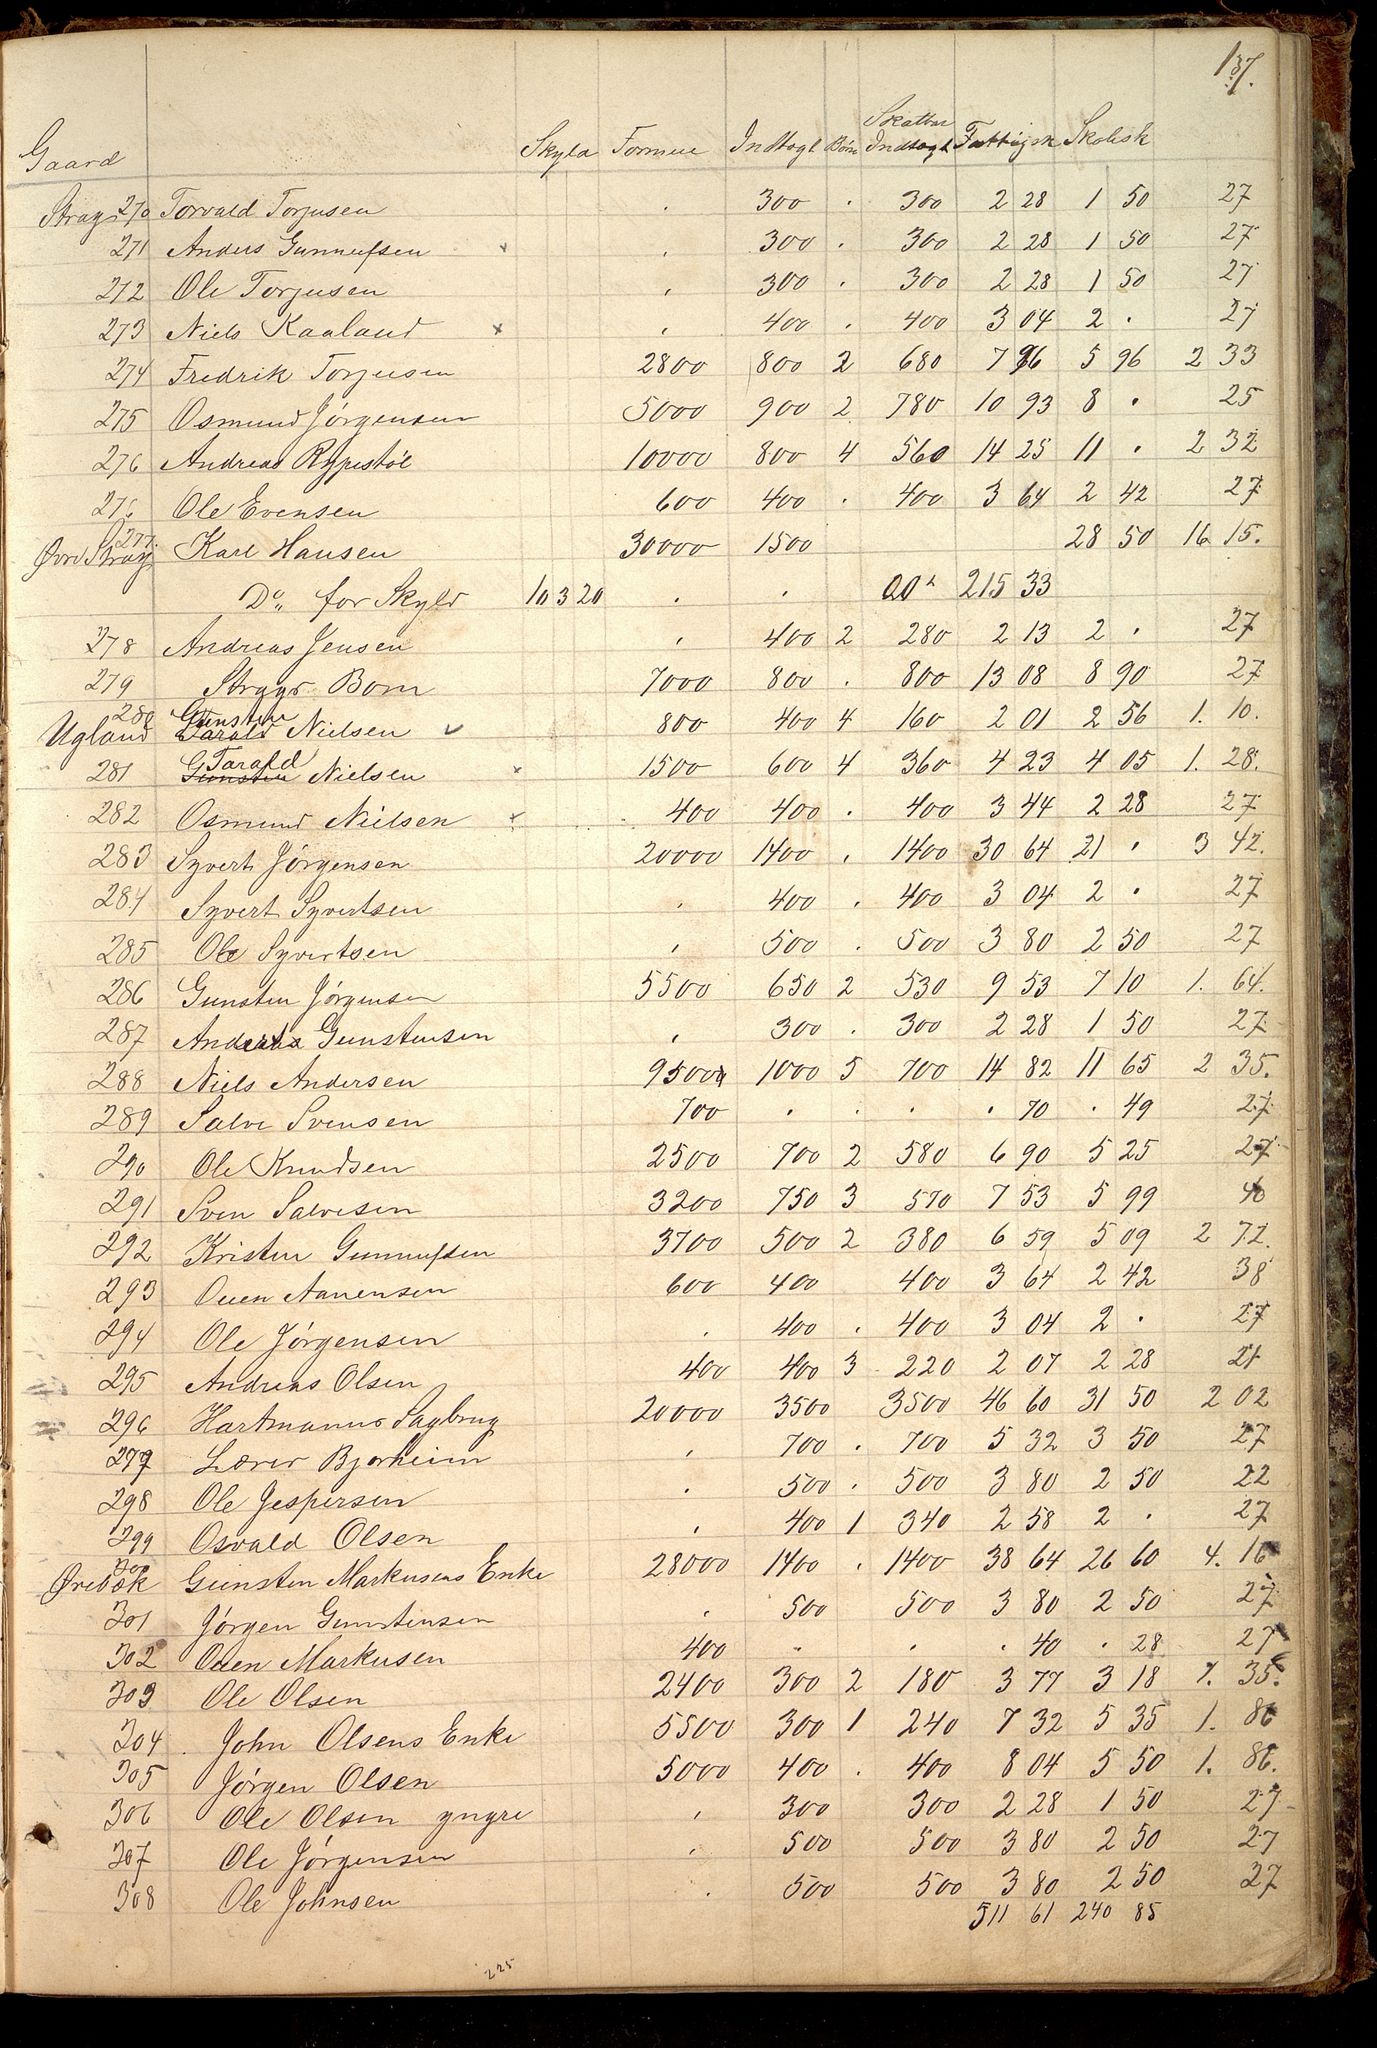 137.
Gaard Skyld Formue Indtægt Børn Skattbar Indtægt Fattigsk Skolesk
Strag 270 Torvald Torjusen . 300 . 300 2 28 1 50 27
271 Anders Gunnufsen . 300 . 300 2 28 1 50 27
272 Ole Torjusen . 300 . 300 2 28 1 50 27
273 Niels Kaaland x . 400 . 400 3 04 2 . 27
274 Fredrik Torjusen 2800 800 2 680 7 96 5 96 2 33
275 Osmund Jørgensen 5000 900 2 780 10 93 8 . 25
276 Andreas Rypestøl 10000 800 4 560 14 25 11 . 2 32
276 Ole Evensen 600 400 . 400 3 64 2 42 27
Øvre Strag 277 Karl Hansen 30000 1500 28 50 16 15.
Do for Skyld 10 3 20 . . 215 33
278 Andreas Jensen . 400 2 280 2 13 2 . 27
279 Born 7000 800 . 800 13 08 8 90 27
Ugland 280 Gunsten Tarald Nielsen 800 400 4 160 2 01 2 56 1. 10.
281 Tarald Gunsten Nielsen x 1500 600 4 360 4 23 4 05 1. 28.
282 Osmund Nielsen x 400 400 . 400 3 44 2 28 27
283 Syvert Jørgensen 20000 1400 . 1400 30 64 21 . 3 42.
284 Syvert Syvertsen . 400 . 400 3 04 2 . 27
285 Ole Syvertsen . 500 . 500 3 80 2 50 27
286 Gunsten Jørgensen 5500 650 2 530 9 53 7 10 1. 64.
287 Gunstensen . 300 . 300 2 28 1 50 27
288 Niels Andersen 9500 1000 5 700 14 82 11 65 2 35.
289 Salve Svensen 700 . . . . 70 . 49 27
290 Ole Knudsen 2500 700 2 580 6 90 5 25 27
291 Sven Salvesen 3200 750 3 570 7 53 5 99 40
292 Kristen Gunnufsen 3700 500 2 380 6 59 5 09 2 72.
293 Ouen Aanensen 600 400 400 3 64 2 42 38
294 Ole Jørgensen . 400 . 400 3 04 2 . 27
295 Andreas Olsen 400 400 3 220 2 07 2 28 21
296 Hartmanns Sagbrug 20000 3500 3500 46 60 31 50 2 02
297 Lærer Bjorheim . 700 . 700 5 32 3 50 27
298 Ole Jespersen . 500 . 500 3 80 2 50 22
299 Osvald Olsen . 400 1 340 2 58 2 . 27
Ørebæk 300 Gunsten Markusens Enke 28000 1400 . 1400 38 64 26 60 4. 16
301 Jørgen Gunstensen . 500 500 3 80 2 50 27
302 Ouen Markusen 400 . . . 40 . 28 27
303 Ole Olsen 2400 300 2 180 3 77 3 18 1. 35.
304 John Olsens Enke 5500 300 1 240 7 32 5 35 1. 86
305 Jørgen Olsen 5000 400 . 400 8 04 5 50 1. 86.
306 Ole Olsen yngre . 300 300 2 28 1 50 27
307 Ole Jørgensen . 500 500 3 80 2 50 27
308 Ole Johnsen . 500 500 3 80 2 50 27
511 61 240 85
225